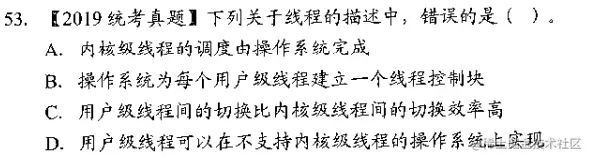 53. 【2019 统考真题】下列关于线程的描述中，错误的是（ ）。
A. 内核级线程的调度由操作系统完成
B. 操作系统为每个用户级线程建立一个线程控制块
C. 用户级线程间的切换比内核级线程间的切换效率高
D. 用户级线程可以在不支持内核级线程的操作系统上实现